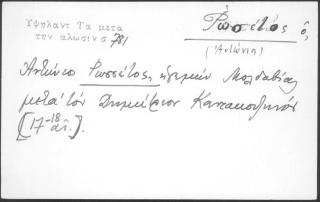 Υψηλαντ Τα μετα
την αλωσιν σ 781
Ῥωσέτος ὁ,
(Ἀντώνιος)
Ἀντώνιο Ρωσσέτος, ἡγεμὼν Μολδαβίας
μετὰ τὸν Δημήτριον Καντακουζηνὸν
[17-18 αἰ.].